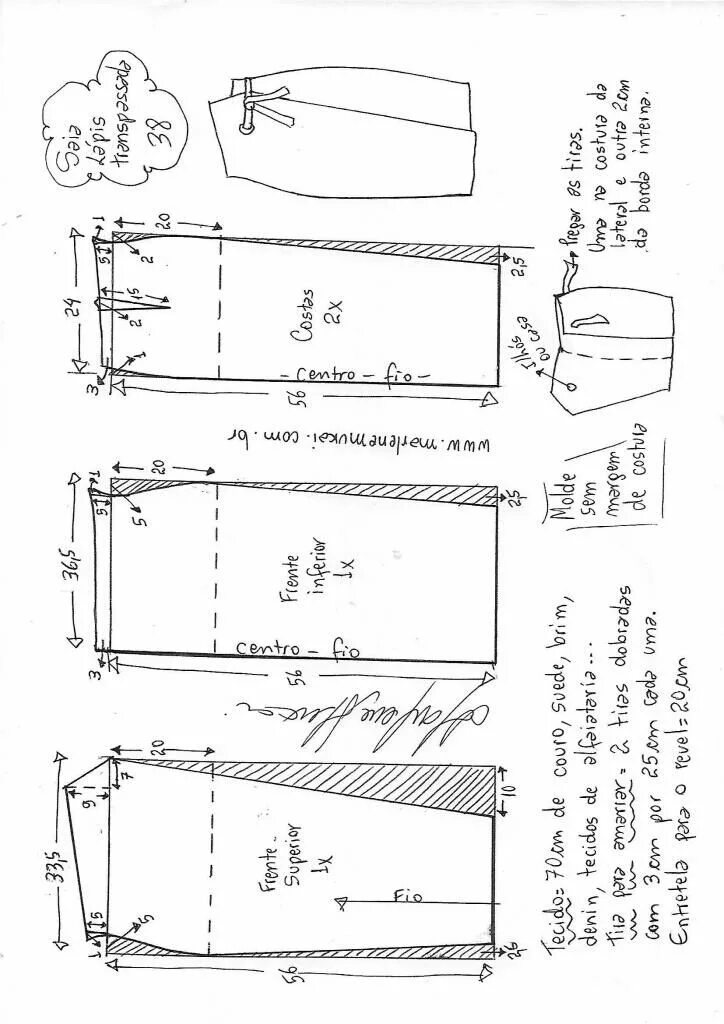 Saia
Lápis
transpassada
38
Pregar as tiras.
Uma na costura da
lateral e outra 2cm
da borda interna.
Ilhós
ou casa
24
1
5
20
2
15
2
1
3
Costas
2X
- centro - fio -
56
2,5
www.marlenemukai.com.br
Molde
sem
margem
de costura
36,5
1
5
20
5
Frente
inferior
1X
centro - fio
3
56
2,5
33,5
9
7
20
5
5
1
Frente
Superior
1X
Fio
10
56
2,5
Tecido= 70cm de couro, suede, brim,
denin, tecidos de alfaiataria...
tira para amarrar= 2 tiras dobradas
com 3cm por 25cm cada uma.
Entretela para o revel=20cm